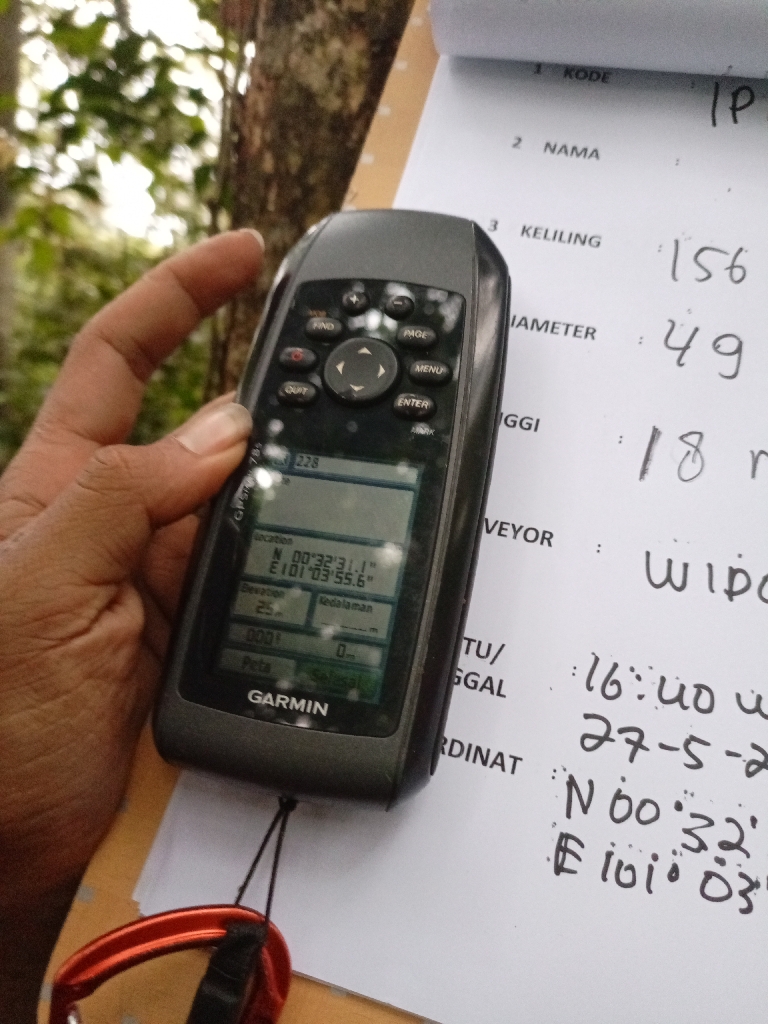 1 KODE : IP
2 NAMA :
3 KELILING : 156
IAMETER : 49
GGI : 18
VEYOR : WIDO
TU/
GGAL : 16:40
27-5-2
RDINAT : N 00° 32'
E 101° 03'
+ -
FIND PAGE
MENU
QUIT ENTER
MARK
228
Location
N 00°32'31.1"
E101°03'55.6"
Elevation Kedalaman
25m ____m
0m
Peta Selesai
GARMIN